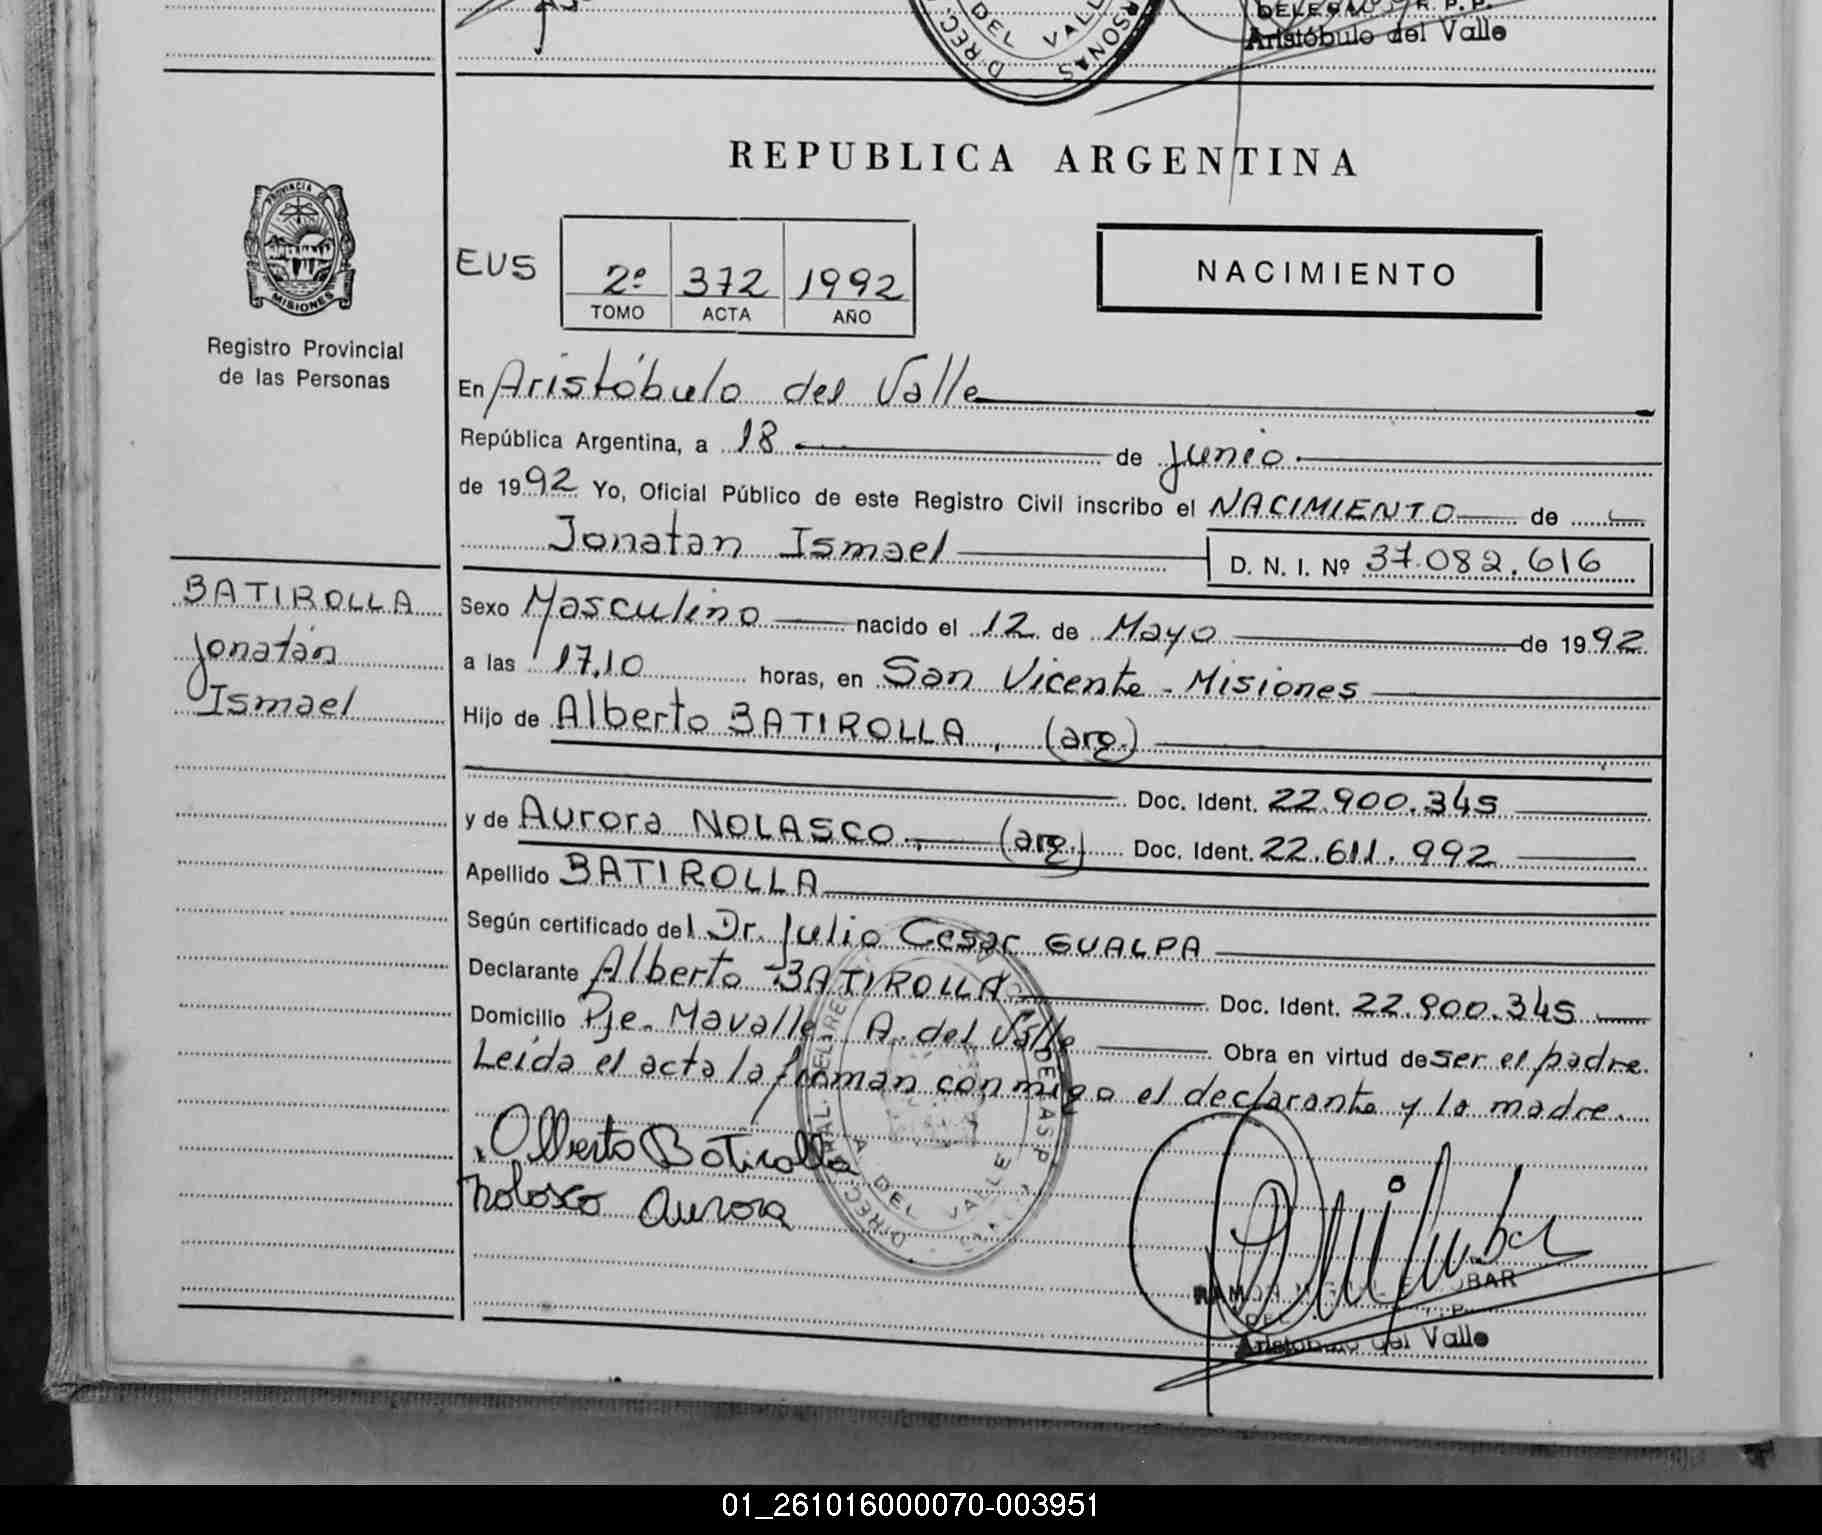 DELEGADO R. P. P.
Aristóbulo del Valle
DEL VALLE
REPUBLICA ARGENTINA
PROVINCIA
MISIONES
Registro Provincial
de las Personas
EUS
2º 372 1992
TOMO ACTA AÑO
NACIMIENTO
En Aristóbulo del Valle
República Argentina, a 18 de junio
de 1992 Yo, Oficial Público de este Registro Civil inscribo el NACIMIENTO de
Jonatan Ismael D. N. I. Nº 37.082.616
BATIROLLA
Jonatán
Ismael
Sexo Masculino nacido el 12 de Mayo de 1992
a las 17,10 horas, en San Vicente - Misiones
Hijo de Alberto BATIROLLA, (arg.)
Doc. Ident. 22.900.345
y de Aurora NOLASCO, (arg.) Doc. Ident. 22.611.992
Apellido BATIROLLA
Según certificado del Dr. Julio Cesar GUALPA
Declarante Alberto BATIROLLA Doc. Ident. 22.900.345
Domicilio Pje. Mavalle A. del Valle Obra en virtud de ser el padre.
Leída el acta la firman conmigo el declarante y la madre.
Alberto Batirolla
Nolasco Aurora
DEL VALLE
Aristóbulo del Valle
01_261016000070-003951